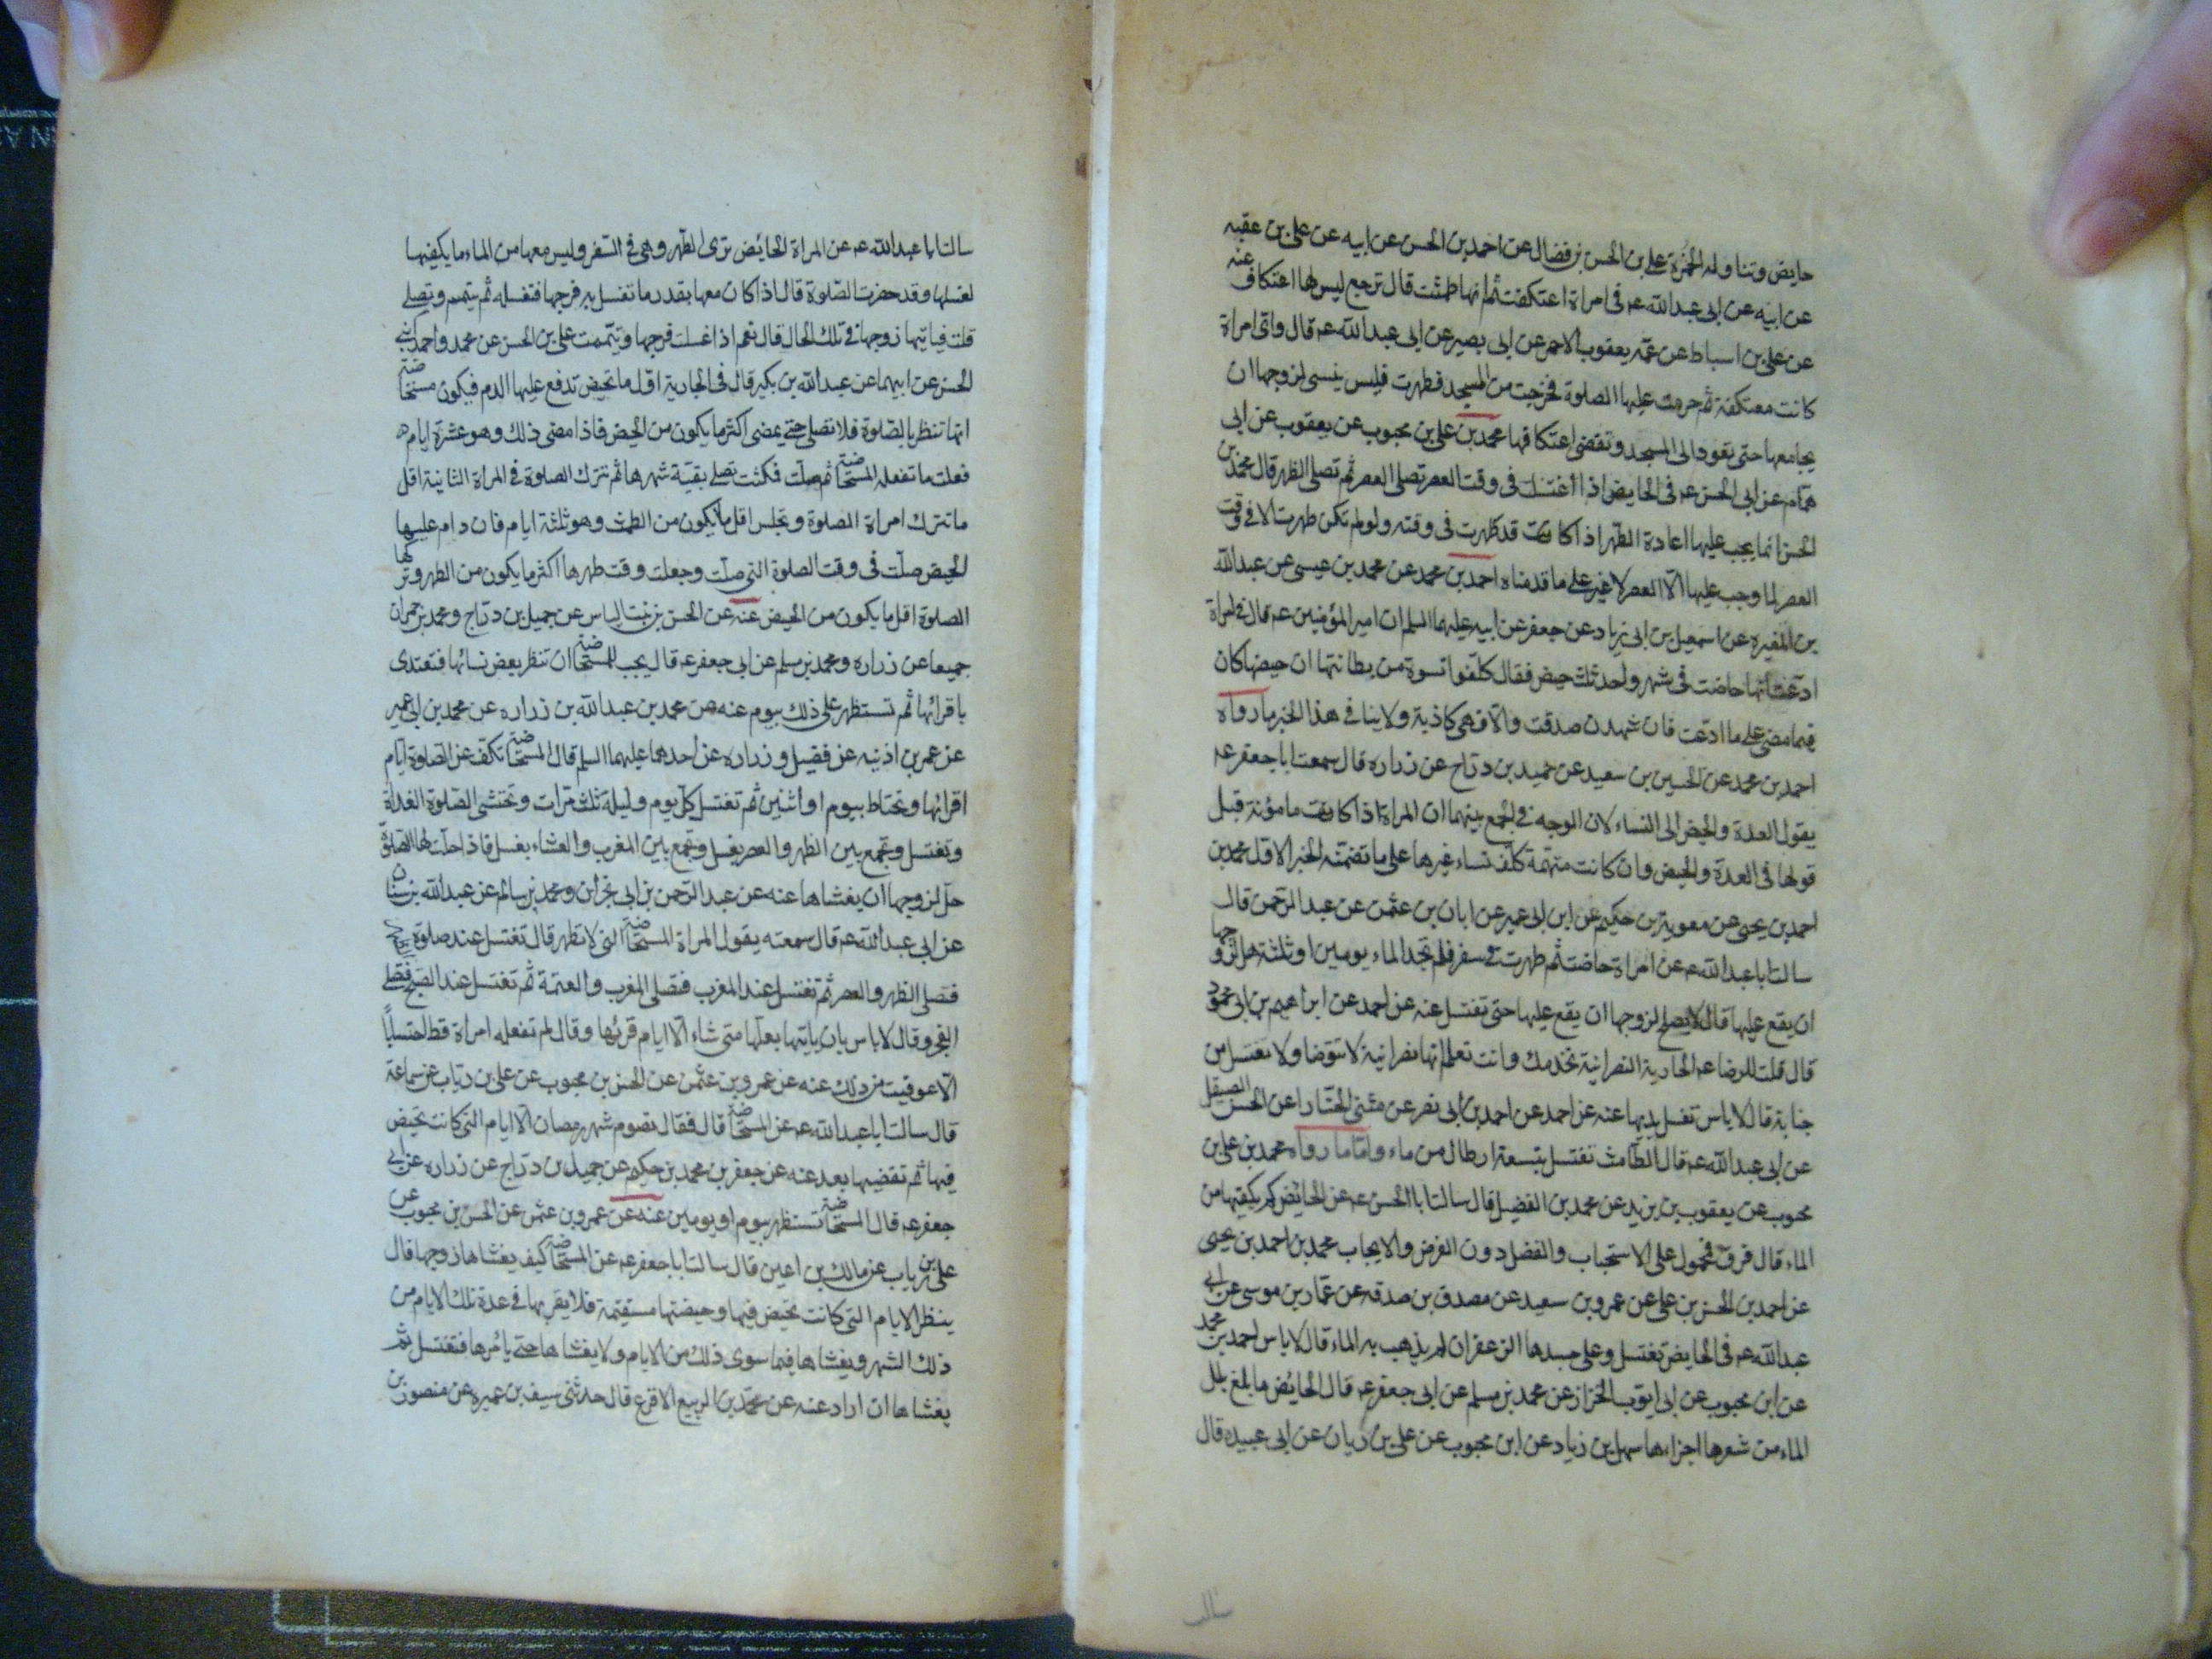 حايض وتناوله الخمرة علي بن الحسن بن فضال عن احمد بن الحسن عن ابيه عن علي بن عقبه
عن ابيه عن ابي عبدالله عه في امراة اعتكفت ثم انها طمثت قال ترجع ليس لها اعتكاف عنه
عن علي بن اسباط عن عمه يعقوب الاحمر عن ابي بصير عن ابي عبدالله عه قال واتى امراة
كانت معتكفة ثم حرمت عليها الصلوة فخرجت من المسجد فطهرت فليس ينبغى لزوجها ان
يجامعها حتى تعود الى المسجد وتقضى اعتكافها محمد بن علي بن محبوب عن يعقوب عن ابى
همام عن ابي الحسن عه في الحايض اذا اغتسلت في وقت العصر تصلى العصر ثم تصلى الظهر قال محمد بن
الحسن انما يجب عليها اعادة الظهر اذا كانت قد طهرت في وقته ولو لم تكن طهرت الا في وقت
العصر لما وجب عليها الا العصر لا غير على ما قدمناه احمد بن محمد عن محمد بن عيسى عن عبدالله
بن المغيره عن اسمعيل بن ابي زياد عن جعفر عن ابيه عليهما السلم ان امير المؤمنين عه قال في امراة
ادعت انها حاضت في شهر واحد ثلث حيض فقال كلفوا نسوة من بطانتها ان حيضها كان
فيما مضى على ما ادعت فان شهدن صدقت والا فهي كاذبة ولا ينافي هذا الخبر ما رواه
احمد بن محمد عن الحسين بن سعيد عن جميل بن دراج عن زراره قال سمعت ابا جعفر عه
يقول العدة والحيض الى النساء لان الوجه في الجمع بينهما ان المراة اذا كانت مامونة قبل
قولها في العدة والحيض وان كانت متهمة كلف نساء غيرها على ما تضمنه الخبر الاول محمد بن
احمد بن يحيى عن معوية بن حكيم عن ابن ابي عمير عن ابان بن عثمن عن عبد الرحمن قال
سالت ابا عبدالله عه عن امراة حاضت ثم طهرت في سفر فلم تجد الماء يومين او ثلثة هل لزوجها
ان يقع عليها قال لا يصلح لزوجها ان يقع عليها حتى تغتسل عنه عن احمد عن ابراهيم بن ابي محمود
قال قلت للرضا عه الجارية النصرانية تخدمك وانت تعلم انها نصرانية لا تتوضا ولا تغتسل من
جنابة قال لا باس تغسل يديها عنه عن احمد عن احمد بن ابي نصر عن مثنى الحناط عن الحسن الصيقل
عن ابي عبدالله عه قال الطامث تغتسل بتسعة ارطال من ماء واما ما رواه محمد بن علي بن
محبوب عن يعقوب بن يزيد عن محمد بن الفضيل قال سالت ابا الحسن عه عن الحائض كم يكفيها من
الماء قال فرق فمحمول على الاستحباب والفضل دون الفرض والايجاب محمد بن احمد بن يحيى
عن احمد بن الحسن بن علي عن عمرو بن سعيد عن مصدق بن صدقه عن عمار بن موسى عن ابي
عبدالله عه في الحايض تغتسل وعلى جسدها الزعفران لم يذهب به الماء قال لا باس احمد بن محمد
عن ابن محبوب عن ابي ايوب الخزاز عن محمد بن مسلم عن ابي جعفر عه قال الحائض ما بلغ بلل
الماء من شعرها اجزاءها سهل بن زياد عن ابن محبوب عن علي بن رياب عن ابي عبيده قال
سالت
سالت ابا عبدالله عه عن المراة الحائض ترى الطهر وهي في السفر وليس معها من الماء ما يكفيها
لغسلها وقد حضرت الصلوة قال اذا كان معها بقدر ما تغسل به فرجها فتغسله ثم تيمم وتصلى
قلت فياتيها زوجها في تلك الحال قال نعم اذا غسلت فرجها وتيممت علي بن الحسن عن محمد واحمد بني
الحسن عن ابيهما عن عبدالله بن بكير قال في الجارية اول ما تحيض تدفع عليها الدم فيكون مستحاضة
انها تنظر بالصلوة فلا تصلى حتى يمضى اكثر ما يكون من الحيض فاذا مضى ذلك وهو عشرة ايام
فعلت ما تفعله المستحاضة ثم صلت فمكثت تصلى بقية شهرها ثم تترك الصلوة في المراة الثانية اقل
ما تترك امراة الصلوة وتجلس اقل ما يكون من الطمث وهو ثلثة ايام فان دام عليها
الحيض صلت في وقت الصلوة التي صلت وجعلت وقت طهرها اكثر ما يكون من الطهر وتركها
الصلوة اقل ما يكون من الحيض عنه عن الحسن بن بنت الياس عن جميل بن دراج ومحمد بن حمران
جميعا عن زراره ومحمد بن مسلم عن ابي جعفر عه قال يجب للمستحاضة ان تنظر بعض نسائها فتقتدى
باقرائها ثم تستظهر على ذلك بيوم عنه عن محمد بن عبدالله بن زراره عن محمد بن ابي عمير
عن عمر بن اذنيه عن فضيل وزراره عن احدهما عليهما السلم قال المستحاضة تكف عن الصلوة ايام
اقرائها وتحتاط بيوم او اثنين ثم تغتسل كل يوم وليلة ثلث مرات وتحتشى لصلوة الغداة
وتغتسل وتجمع بين الظهر والعصر بغسل وتجمع بين المغرب والعشاء بغسل فاذا حلت لها الصلوة
حل لزوجها ان يغشاها عنه عن عبد الرحمن بن ابي نجران ومحمد بن سالم عن عبدالله بن سنان
عن ابي عبدالله عه قال سمعته يقول المراة المستحاضة التي لا تطهر قال تغتسل عند صلوة
فتصلى الظهر والعصر ثم تغتسل عند المغرب فتصلى المغرب والعتمة ثم تغتسل عند الصبح فتصلى
الفجر وقال لا باس بان ياتيها بعلها متى شاء الا ايام قرئها وقال لم تفعله امراة قط احتسابًا
الا عوفيت من ذلك عنه عن عمرو بن عثمن عن الحسن بن محبوب عن علي بن رياب عن سماعة
قال سالت ابا عبدالله عه عن المستحاضة قال فقال تصوم شهر رمضان الا الايام التي كانت تحيض
فيها ثم تقضيها بعد عنه عن جعفر بن محمد بن حكيم عن جميل بن دراج عن زراره عن ابي
جعفر عه قال المستحاضة تستظهر بيوم او يومين عنه عن عمرو بن عثمن عن الحسن بن محبوب عن
علي بن رياب عن مالك بن اعين قال سالت ابا جعفر عه عن المستحاضة كيف يغشاها زوجها قال
ينظر الايام التي كانت تحيض فيها وحيضتها مستقيمة فلا يقربها في عدة تلك الايام من
ذلك الشهر ويغشاها فيما سوى ذلك من الايام ولا يغشاها حتى يامرها فتغتسل ثم
يغشاها ان اراد عنه عن محمد بن الربيع الاقرع قال حدثنى سيف بن عميره عن منصور بن